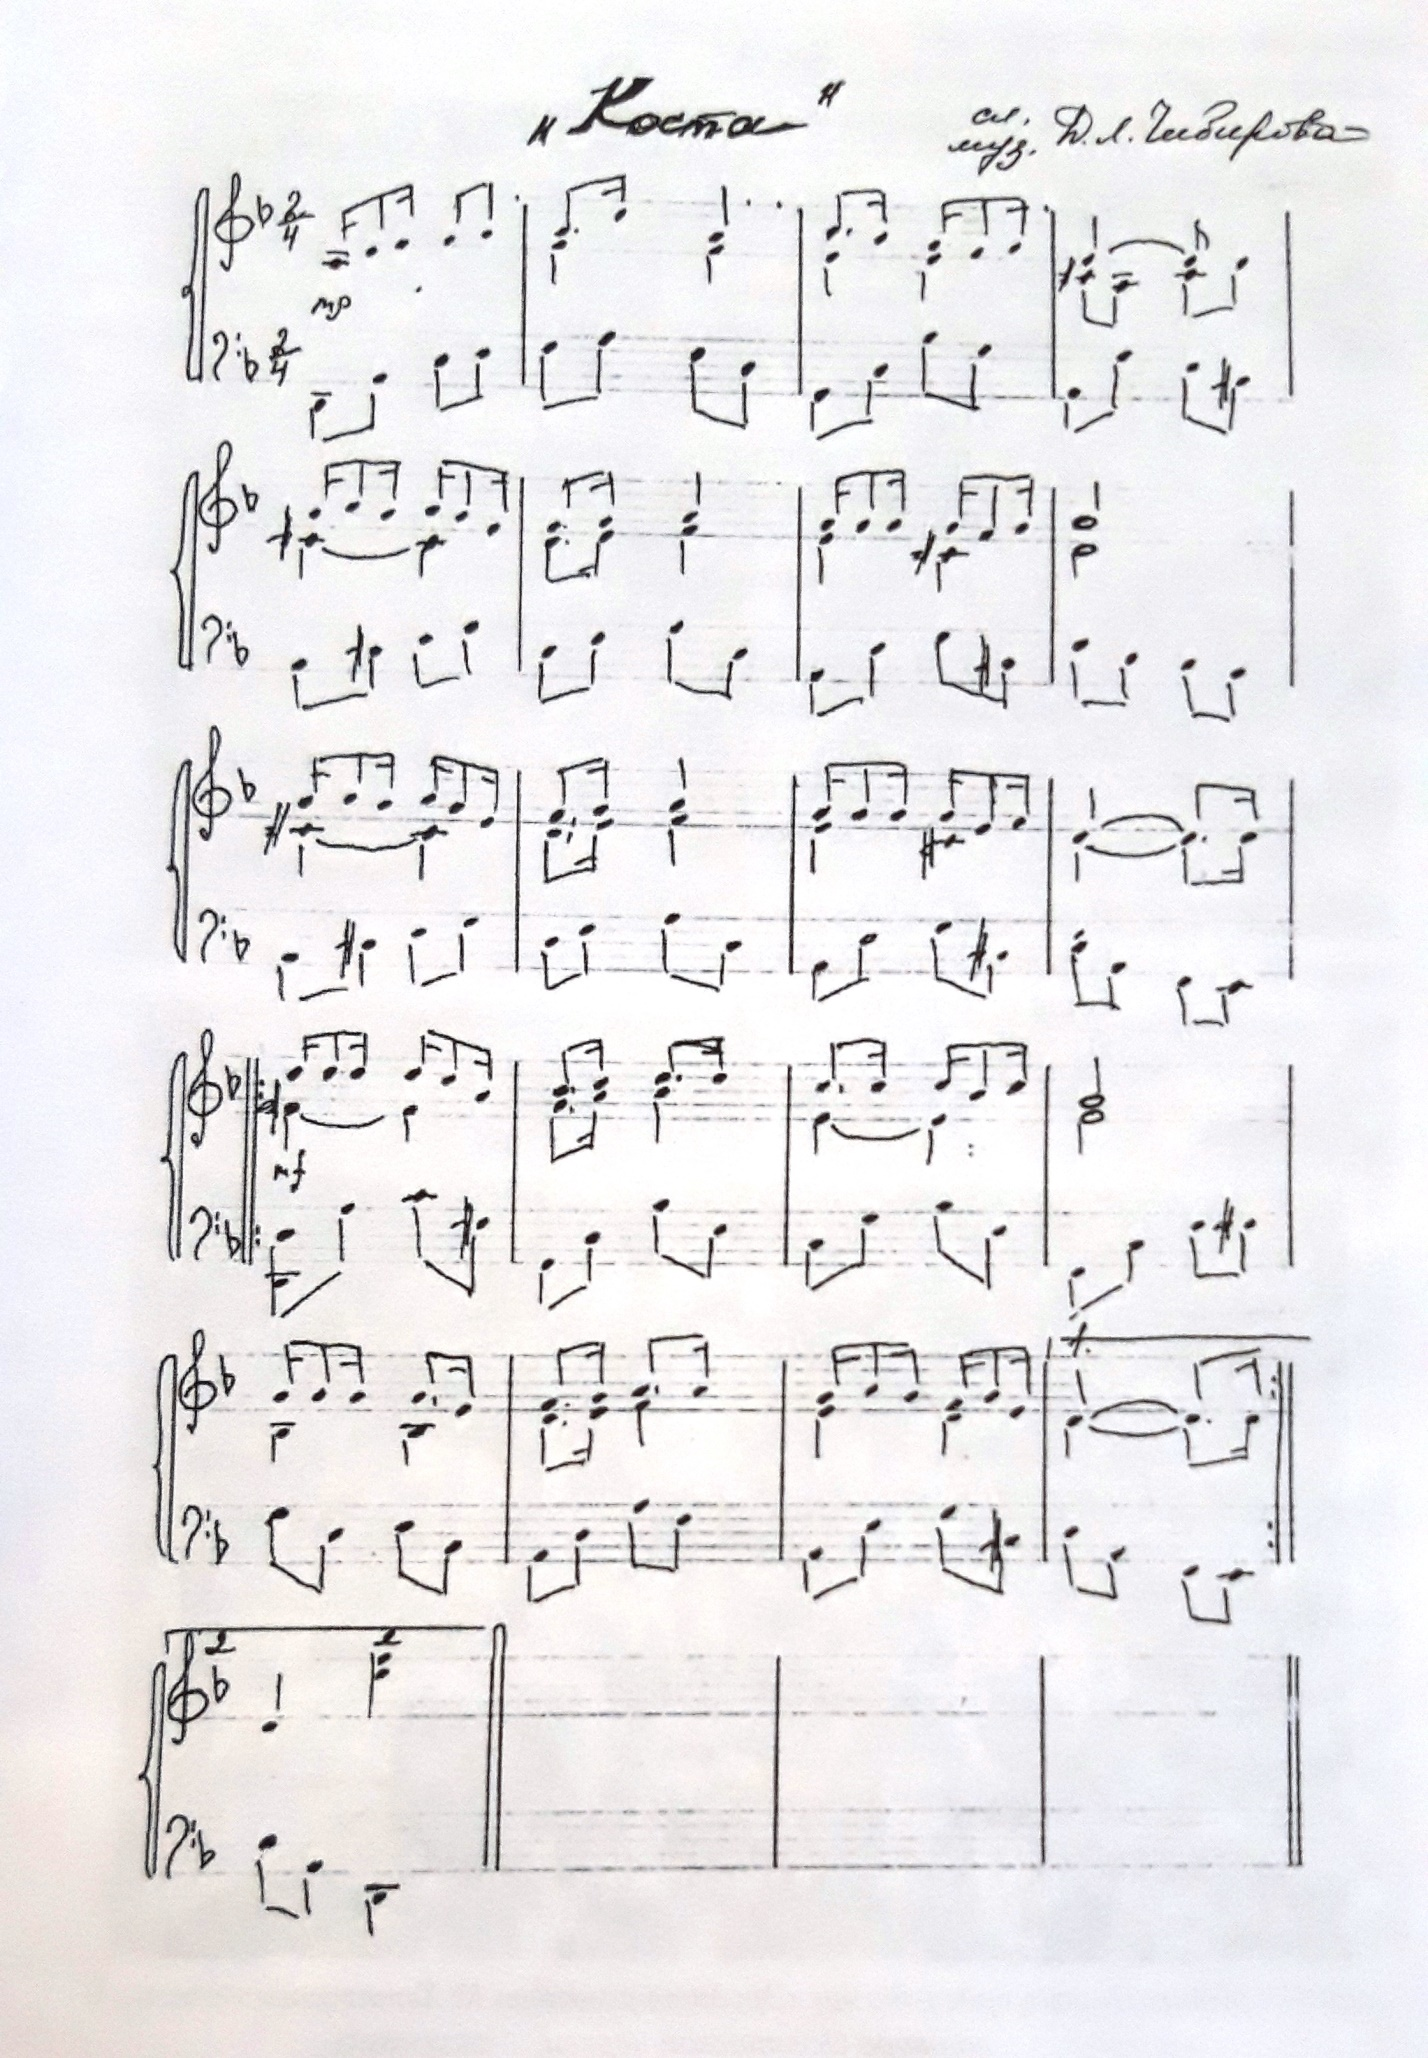 „Коста"
сл.
муз. Д.Л. Чибирова
2
4
mp
2
4
mf
1.
2